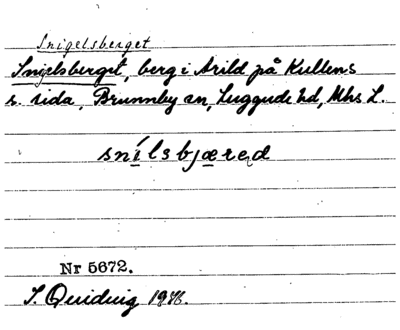 Snigelsberget
Snigelsberget, berg i Arild på Kullens
s. sida, Brunnby sn, Luggude hd, Mhs L.
snílsbjæred
Nr 5672.
I. Quiding